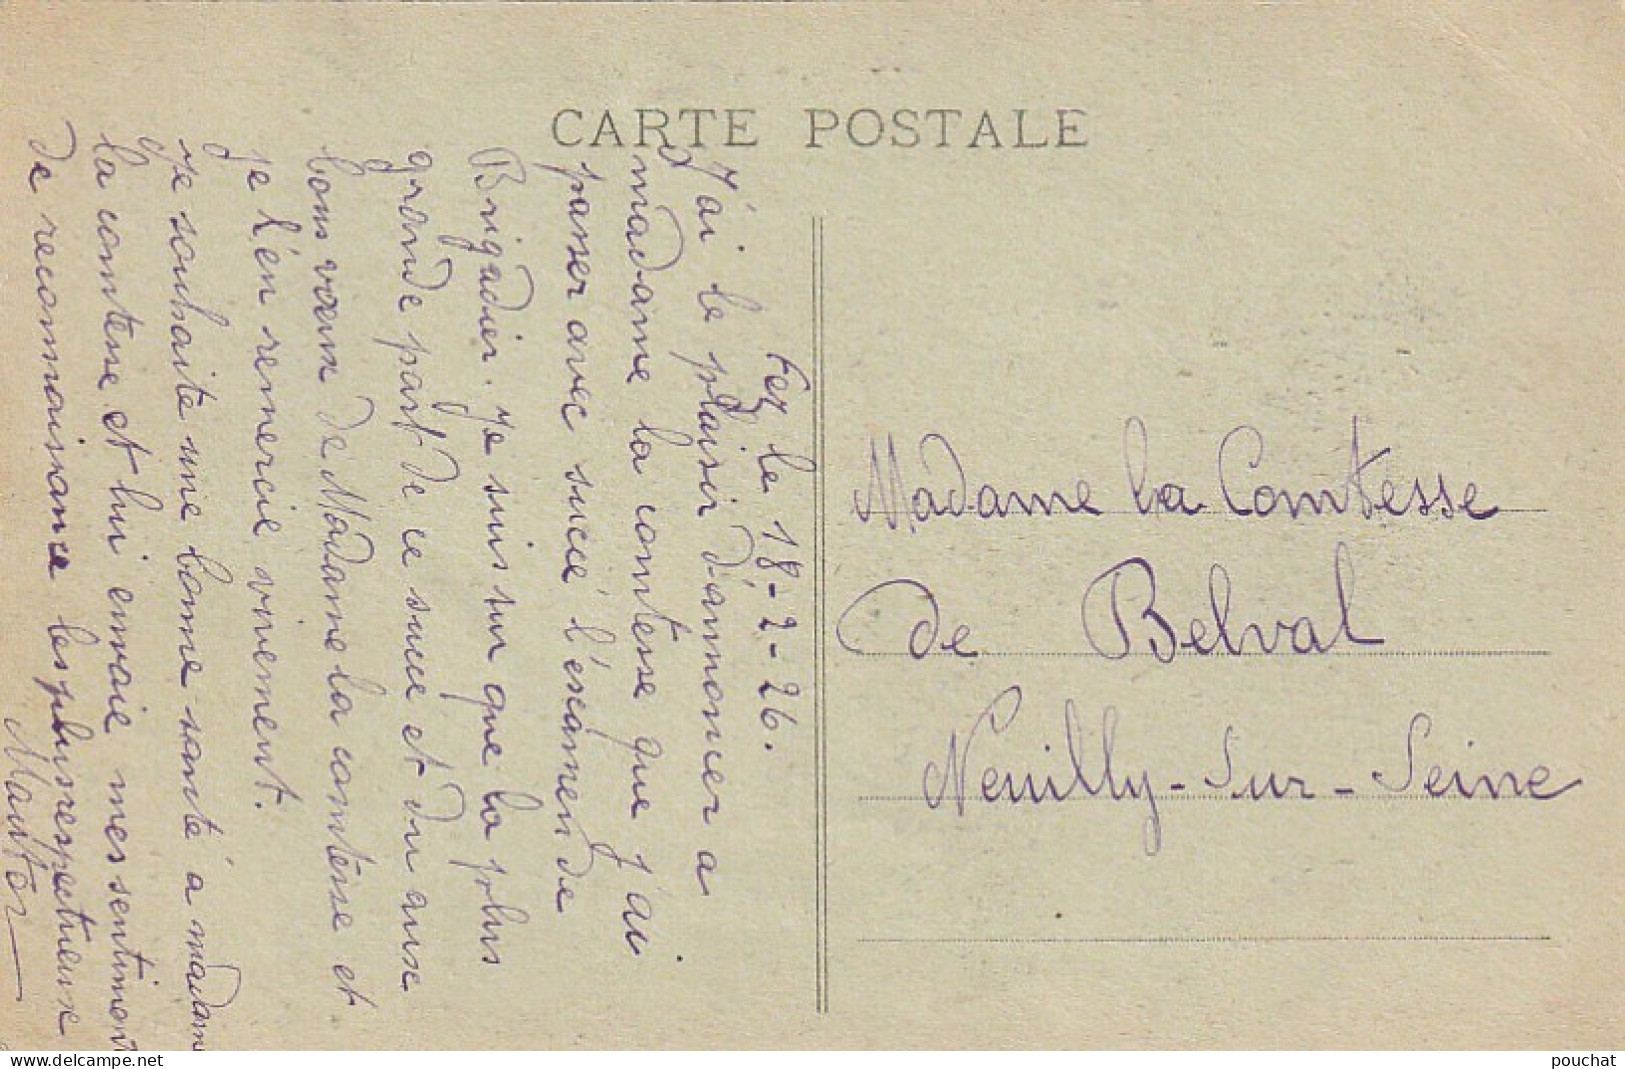 CARTE POSTALE
Fez le 18-2-26.
J'ai le plaisir d'annoncer a
madame la contesse que j'ai
passer avec succé l'éxamen de
Brigadier. Je suis sur que la plus
grande part de ce succé est du aux
bons voeux de Madame la contesse et
je l'en remercie vivement.
Je souhaite une bonne santé à madame
la contesse et lui envoie mes sentiment
de reconnaissance les plus respectueuse
Madame la Comtesse
de Belval
Neuilly-Sur-Seine
www.delcampe.net
pouchat